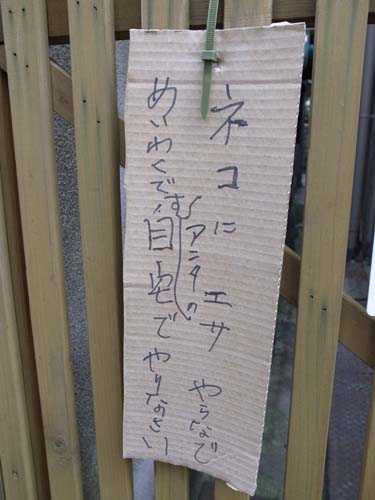 ネコにエサ やらないで
めいわくです自宅でやりなさい
アンタの